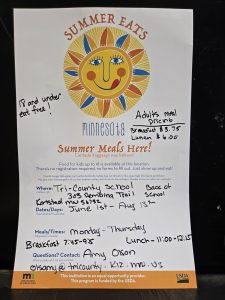 SUMMER EATS
minnesota
18 and under
eat free!
Adults meal
Pricing
Breakfast $3.75
Lunch $6.00
Summer Meals Here!
Food for kids up to 18 available at this location.
There's no registration required, no forms to fill out. Just show up and eat!
Where: Tri-County School Back of School
303 Pembina Trail
Karlstad MN 56732
Dates/Days: June 1st - Aug 13th
Meals/Times: Monday-Thursday
Breakfast 7:45-9 Lunch-11:00-12:15
Questions? Contact: Amy Olson
olsonj@tricounty.k12.mn.us
This institution is an equal opportunity provider.
This program is funded by the USDA.
USDA